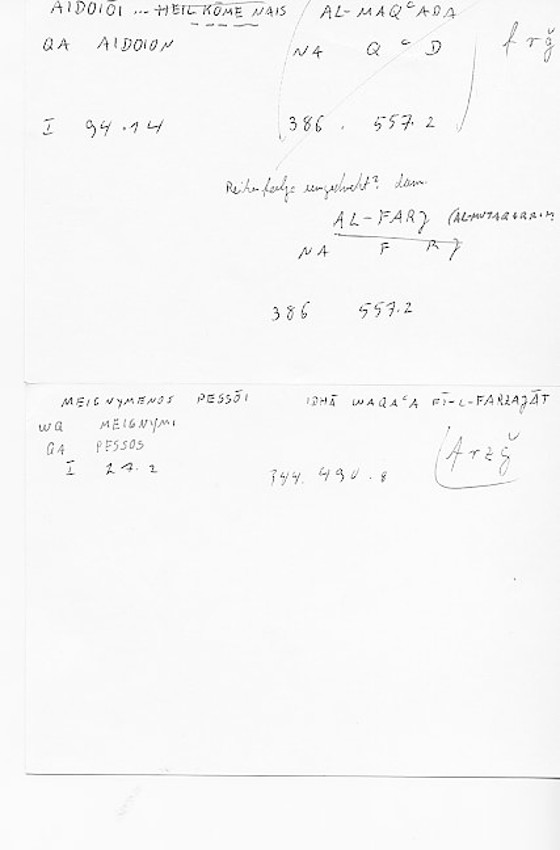 AIDOIŌI ... HEILKŌMENAIS AL-MAQᶜADA
QA AIDOION NA Q ᶜ D frǧ
I 94.14 386. 557.2
Reihenfolge umgedreht? dann
AL-FARJ
NA F R J
386 557.2
MEIGNYMENOS PESSŌI IDHĀ WAQAᶜA FĪ-L-FARZAJĀT
WQ MEIGNYMI
QA PESSOS frzǧ
I 27.2 344. 490.8